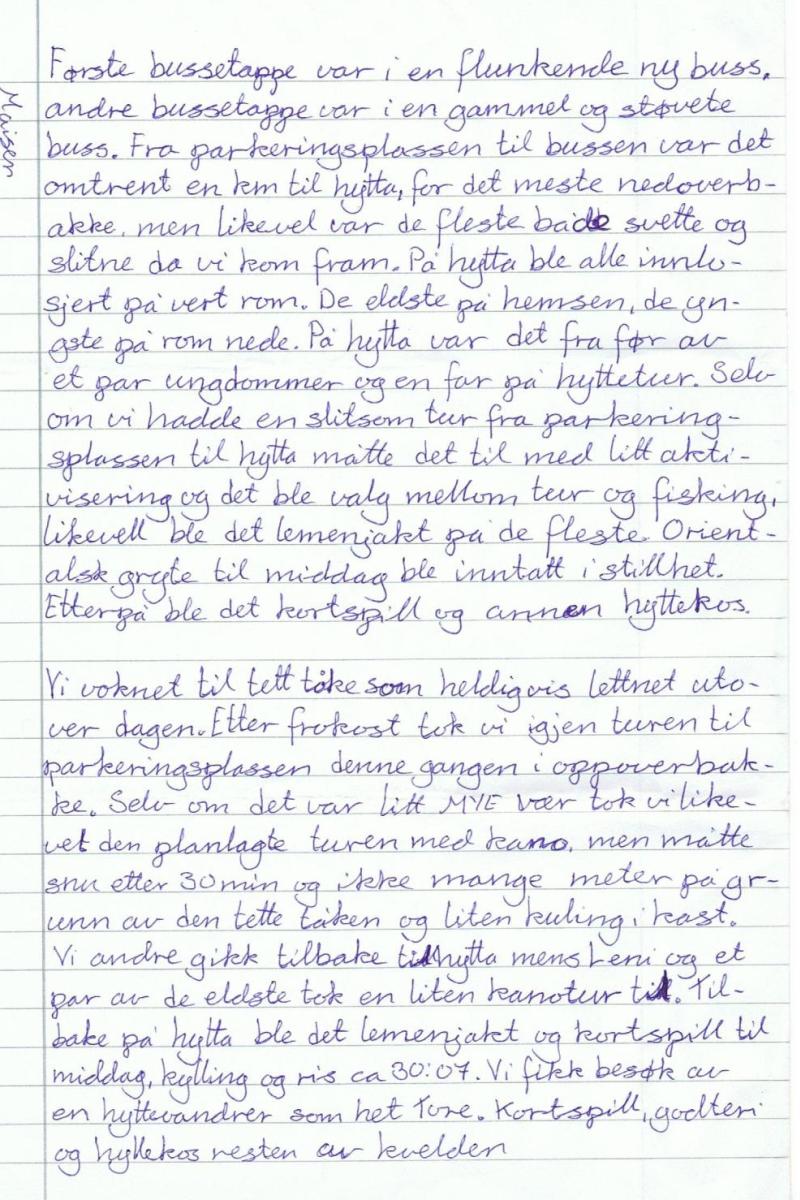 Første bussetappe var i en flunkende ny buss,
andre bussetappe var i en gammel og støvete
buss. Fra parkeringsplassen til bussen var det
omtrent en km til hytta, for det meste nedoverb-
akke, men likevel var de fleste både svette og
slitne da vi kom fram. På hytta ble alle innlo-
sjert på vert rom. De eldste på hemsen, de yn-
gste på rom nede. På hytta var det fra før av
et par ungdommer og en far på hyttetur. Selv
om vi hadde en slitsom tur fra parkering-
splassen til hytta måtte det til med litt akti-
visering og det ble valg mellom tur og fisking,
likevell ble det lemenjakt på de fleste. Orient-
alsk gryte til middag ble inntatt i stillhet.
Etterpå ble det kortspill og annen hyttekos.
Vi våknet til tett tåke som heldigvis lettnet uto-
ver dagen. Etter frokost tok vi igjen turen til
parkeringsplassen denne gangen i oppoverbak-
ke. Selv om det var litt MYE vær tok vi like-
vel den planlagte turen med kano, men måtte
snu etter 30 min og ikke mange meter på gr-
unn av den tette tåken og liten kuling i kast.
Vi andre gikk tilbake til hytta mens Leni og et
par av de eldste tok en liten kanotur til. Til-
bake på hytta ble det lemenjakt og kortspill til
middag, kylling og ris ca 30:07. Vi fikk besøk av
en hyttevandrer som het Tore. Kortspill, godteri
og hyttekos resten av kvelden
Maisen